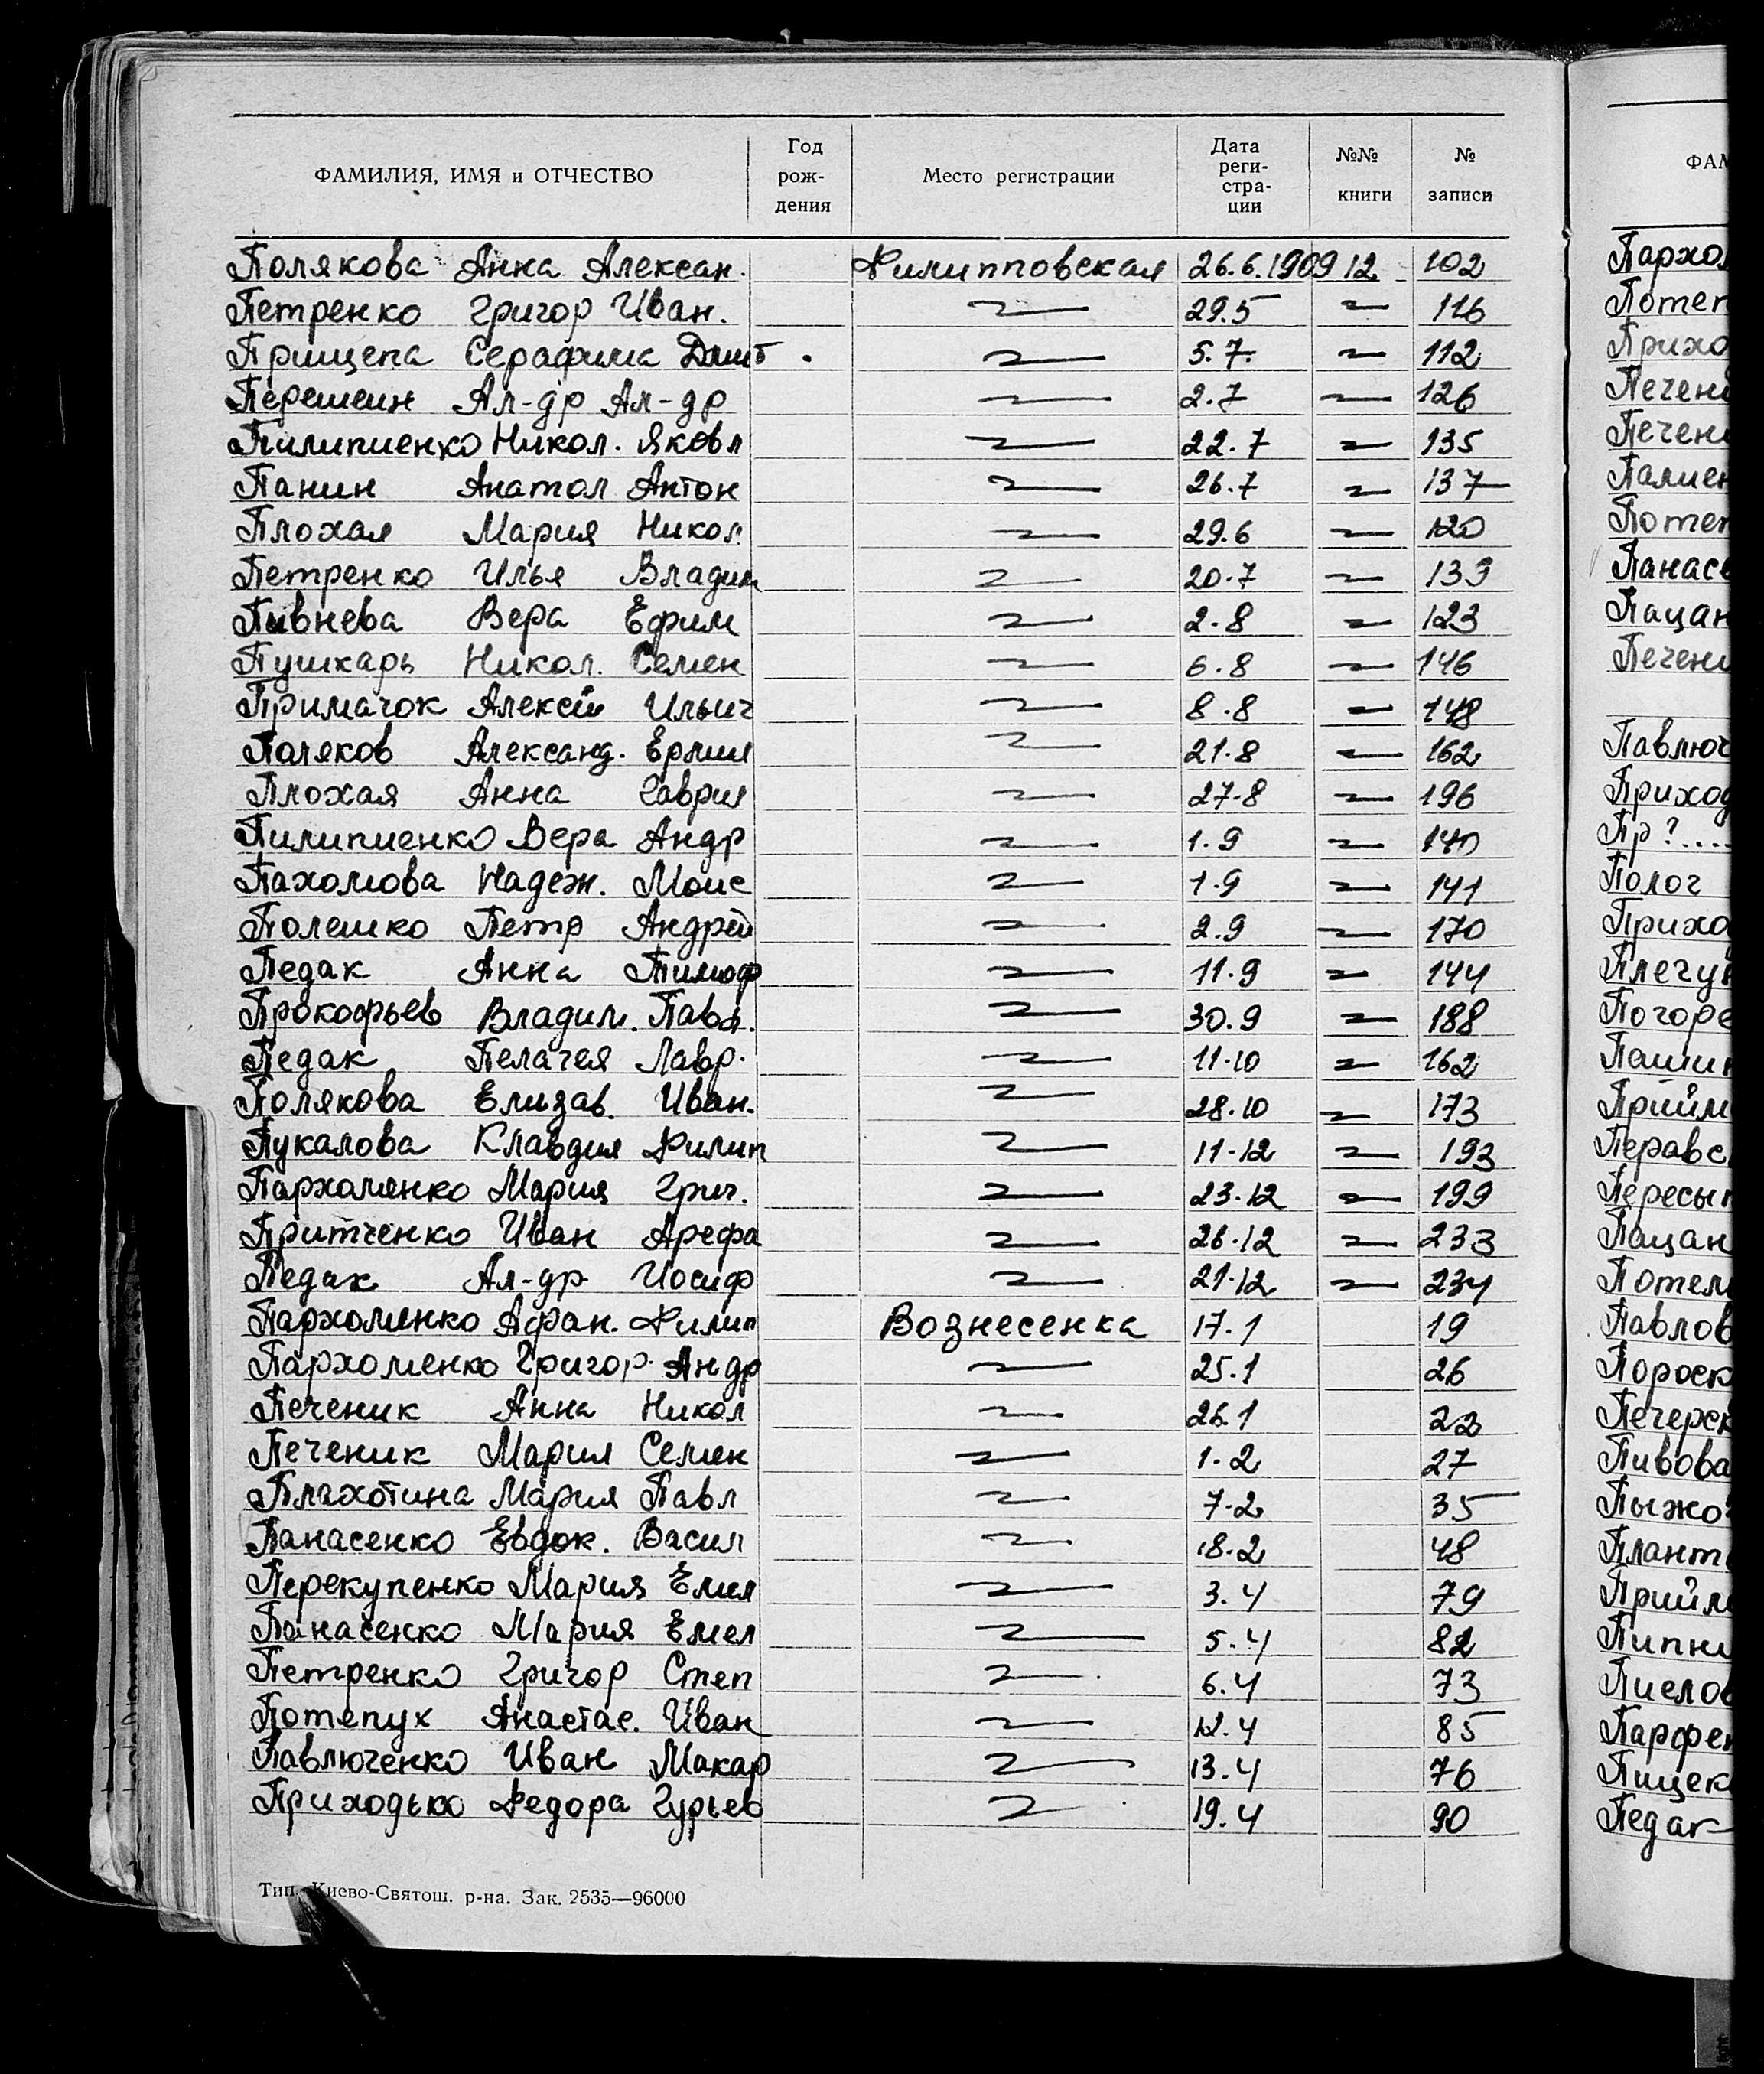 ФАМИЛИЯ, ИМЯ и ОТЧЕСТВО Год рож- дения Место регистрации Дата реги- стра- ции №№ книги № записи
Полякова Анна Алексан. Филипповская 26.6.1909 12 102
Петренко Григор Иван. 29.5 116
Прищепа Серафима Дмит 5.7. 112
Ал-др Ал-др 2.7 126
Пилипиенко Никол. Яковл 22.7 135
Панин Анатол Антон 26.7 137
Плохая Мария Никол 29.6 120
Петренко Илья Владим 20.7 139
Пивнева Вера Ефим 2.8 123
Пушкарь Никол. Семен 6.8 146
Примачок Алексей Ильич 8.8 148
Поляков Александ. 21.8 162
Плохая Анна Гаврил 27.8 196
Пилипиенко Вера Андр 1.9 140
Пахомова Надеж. Моис 1.9 141
Полешко Петр Андрей 2.9 170
Педак Анна Тимоф 11.9 144
Прокофьев Владим. Павл. 30.9 188
Педак Пелагея Лавр. 11.10 162
Полякова Елизав. Иван. 28.10 173
Пукалова Клавдия Филип 11.12 193
Пархоменко Мария Григ. 23.12 199
Притченко Иван Арефа 26.12 233
Педак Ал-др Иосиф 21.12 234
Пархоменко Афан. Филип Вознесенка 17.1 19
Пархоменко Григор. Андр 25.1 26
Печеник Анна Никол 26.1 22
Печеник Мария Семен 1.2 27
Плахотина Мария Павл 7.2 35
Панасенко Евдок. Васил 18.2 48
Перекупенко Мария Емел 3.4 79
Панасенко Мария Емел 5.4 82
Петренко Григор Степ 6.4 73
Потепух Анастас. Иван 12.4 85
Павлюченко Иван Макар 13.4 76
Приходько Федора Гурьев 19.4 90
Тип. Киево-Святош. р-на. Зак. 2535—96000
ФАМ
Пархом
Потеп
Прихо
Печени
Печени
Потеп
Панасе
Пацан
Печени
Павлюч
Приход
Пр?....
Полог
Прихо
Плечун
Погоре
Прийм
Перавс
Пересып
Пацан
Потем
Павлов
Пороск
Печерск
Пивова
Пыжо
Плант
Прийм
Пипни
Парфен
Пицек
Педак